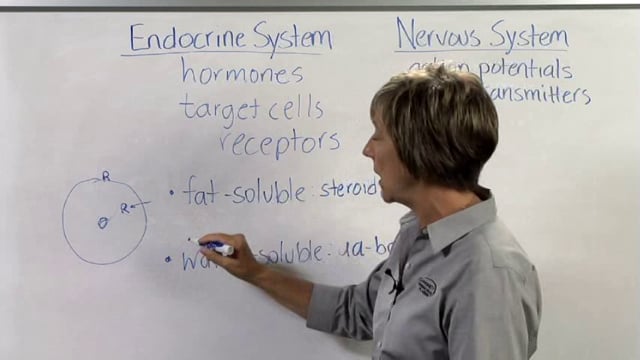 Endocrine System
hormones
target cells
receptors
Nervous System
potentials
R
R
• fat-soluble: steroid
• soluble: